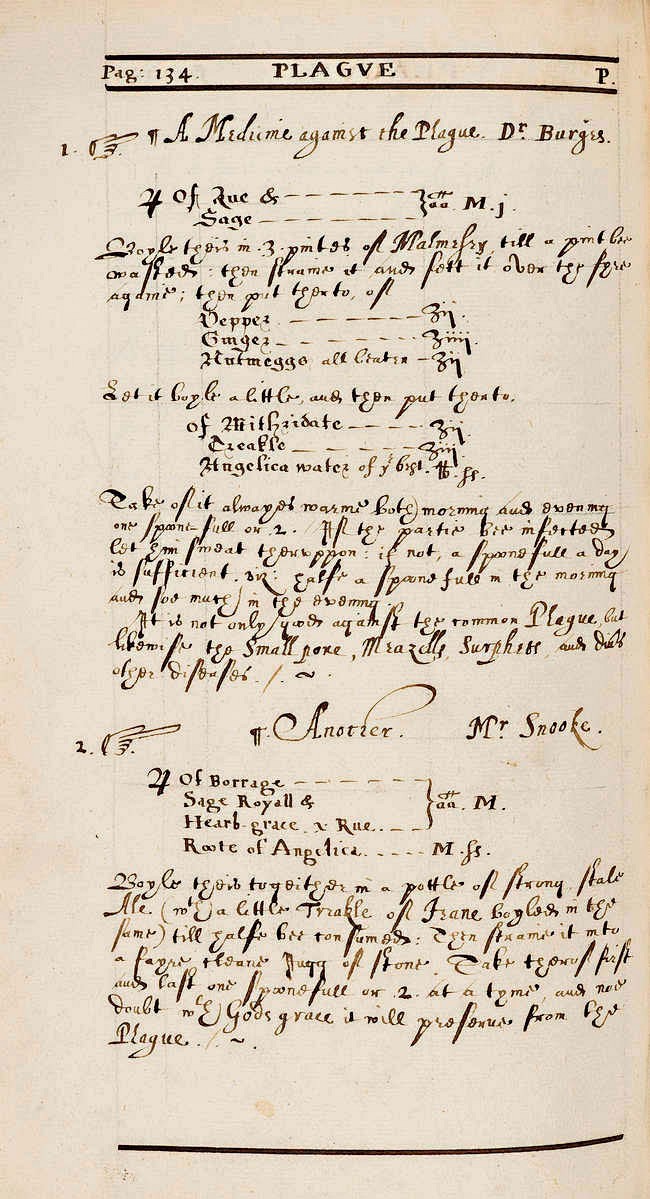 Pag: 134. PLAGVE P.
1. ¶ A Medicine against the Plague. Dr. Burges.
℞ Of Rue &
Sage } ana. M. j.
Boyle theis in .3. pintes of Malmesey till a pint bee
wasted: then straine it and sett it over the fyre
againe; then put therto, of
Pepper ʒij.
Ginger ʒiiij.
Nutmeggs all beaten ʒij
Let it boyle a little, and then put therto.
of Mithridate ʒij
Treakle ʒiij
Angelica water of ye best. lb. ss.
Take of it alwayes warme both morning and evening
one spoone full or .2. If the partie bee infected
let him sweat therevppon: if not, a spoonefull a day
is sufficient. viz: halfe a spoonefull in the morning
and soe much in the evening.
It is not only good against the common Plague, but
likewise the Small poxe, Meazells, Surphets, and divers
other diseases. /. ~
2. ¶. Another. Mr Snooke.
℞ Of Borrage
Sage Royall &
Hearb-grace. x Rue. } ana. M.
Roote of Angelica. M. ss.
Boyle theis togeither in a pottle of strong stale
Ale. (wth a little Treakle of Jeane boyled in the
same) till halfe bee consumed: Then straine it into
a fayre cleane Jugg of stone. Take therof first
and last one spoonefull or .2. at a tyme, and noe
doubt wth Gods grace it will preserve from the
Plague. /. ~.